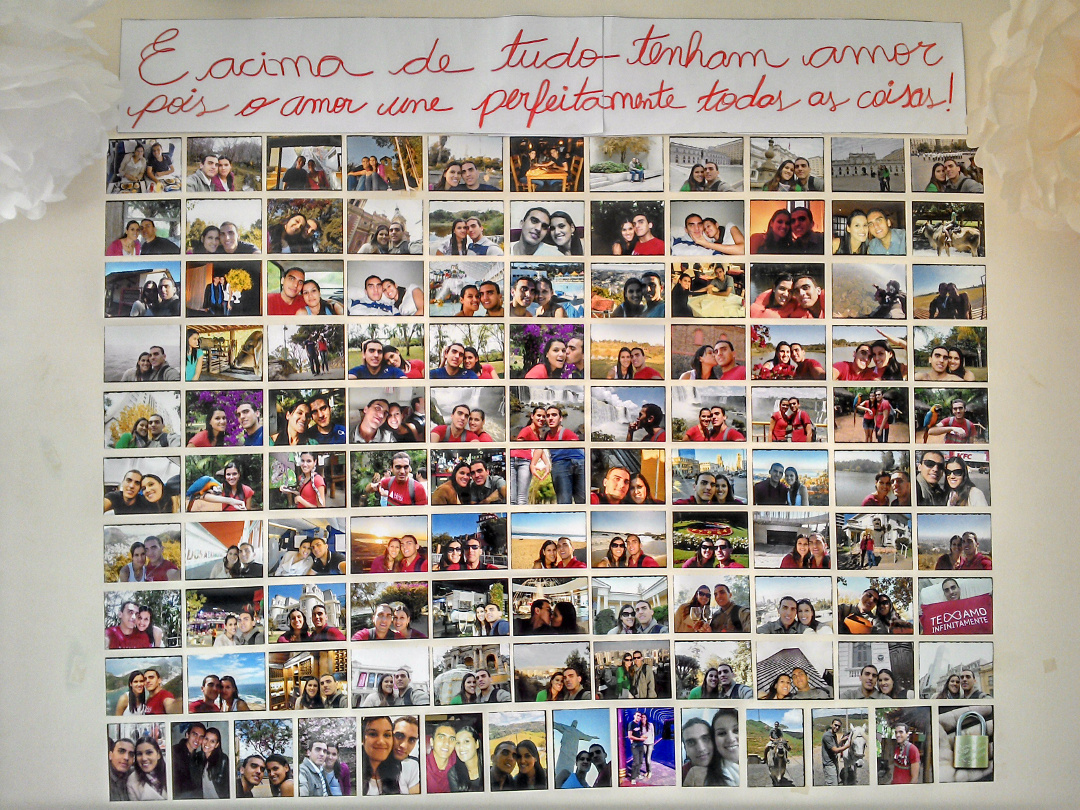 E acima de tudo tenham amor
pois o amor une perfeitamente todas as coisas!
KFC
TE AMO
INFINITAMENTE